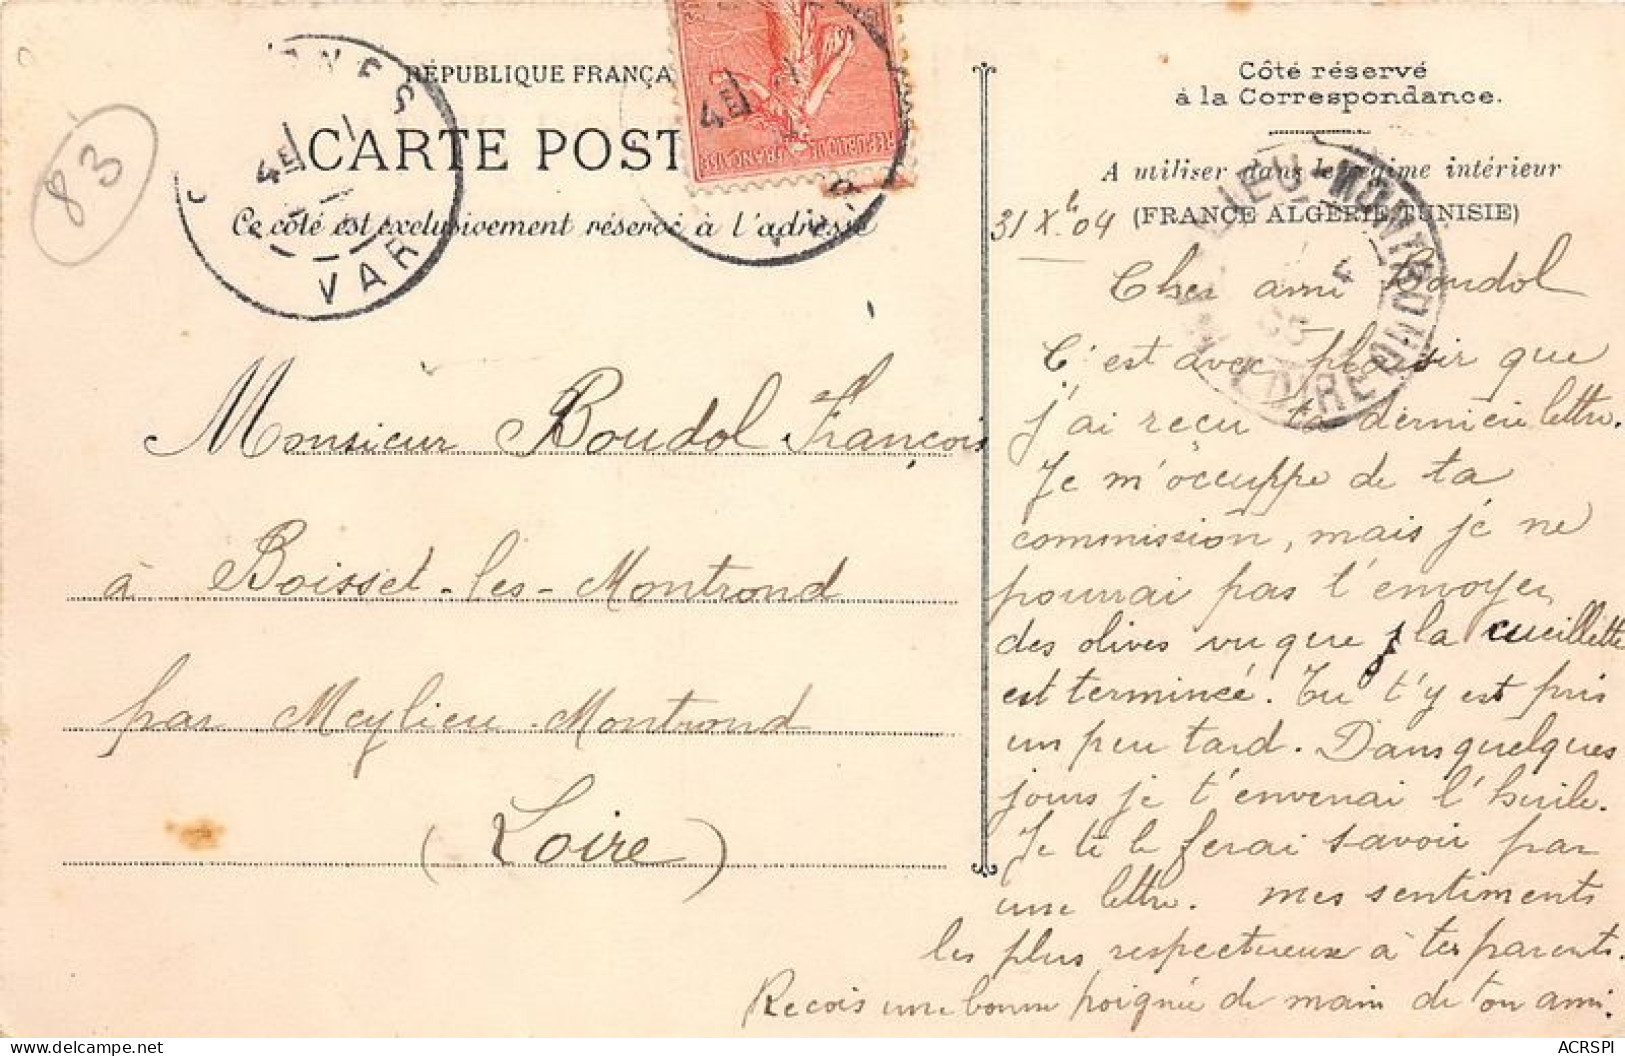 83
RÉPUBLIQUE FRANÇA
CARTE POST
Ce côté est exclusivement réservé à l'adresse
4E
VAR
4E
VAR
RÉPUBLIQUE FRANÇAISE
Monsieur Boudol François
à Boisset-les-Montrond
par Meylieu-Montrond
(Loire)
Côté réservé
à la Correspondance.
A utiliser dans le régime intérieur
(FRANCE ALGERIE TUNISIE)
LIEU-MONTROND
LOIRE
31 Xbre 04
Cher ami Boudol
C'est avec plaisir que
j'ai reçu ta dernière lettre.
Je m'occuppe de ta
commission, mais je ne
pourrai pas t'envoyer
des olives vu que la cueillette
est terminée. Tu t'y est pris
un peu tard. Dans quelques
jours je t'enverrai l'huile.
Je te le ferai savoir par
une lettre. mes sentiments
les plus respectueux à tes parents.
Reçois une bonne poignée de main de ton ami.
ACRSPI